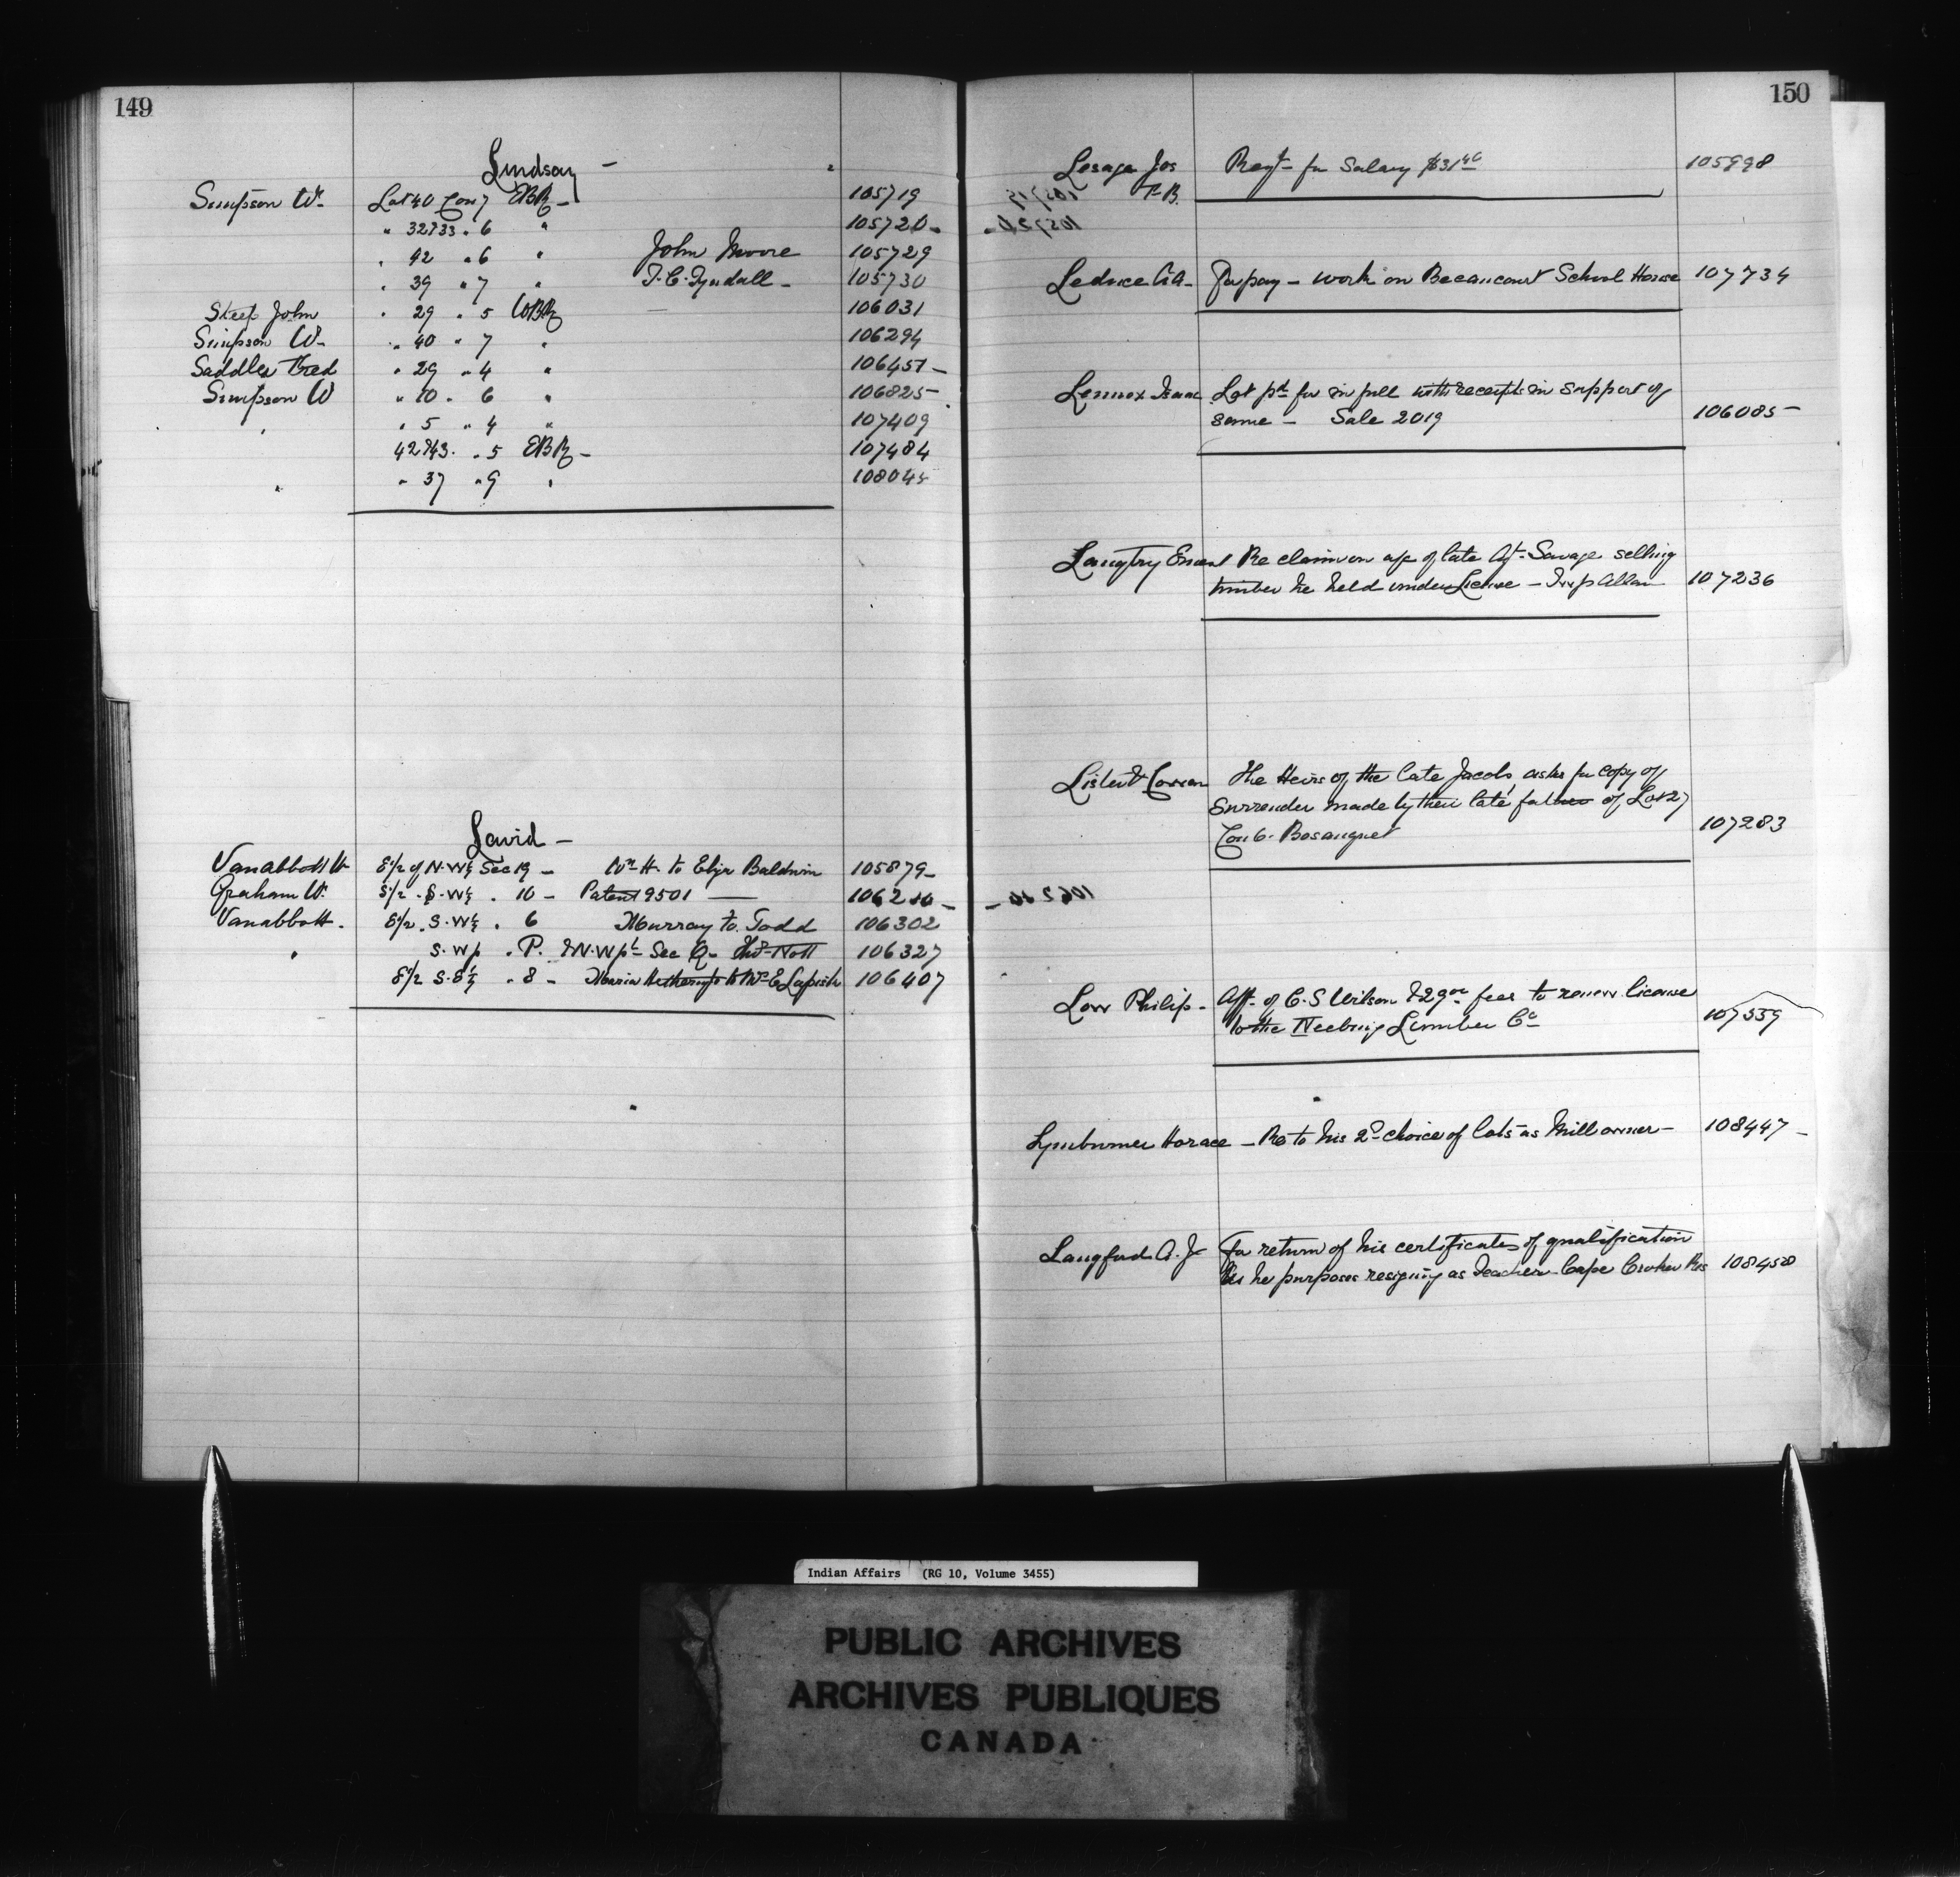 149
Lindsay –
Simpson Wm Lot 40 Con 7 EBR – 105719
" 32 & 33 " 6 " 105720 –
" 42 " 6 " John Moore 105729
" 39 " 7 " T. C. Tyndall – 105730
Steep John " 29 " 5 WBR 106031
Simpson W – " 40 " 7 " 106294
Saddler Fred " 29 " 4 " 106451 –
Simpson W " 10 " 6 " 106825
" " 5 " 4 " 107409
42 & 43 " 5 EBR – 107484
" " 37 " 9 " 108045
Laird –
Vanabbott W E 1/2 of N.W 1/4 Sec 19 – Wm H. to Elija Baldwin 105879 –
Graham W. S 1/2 . S. W 1/4 . 10 – Patent 9501 — 106210 –
Vanabbott . E 1/2 . S. W 1/4 . 6 Murray to Todd 106302
" S. W p . P. & N. W pt Sec Q – Thos Nott 106327
E 1/2 S. E 1/4 . 8 – Maria to Mrs E Lapish 106407
150
Lesage Jos Reqt for Salary $31 105998
P.B.
Leduce C.A – For pay – work on Becancourt School House 107734
Lennox Isaac Lot pd for in full with receipts in support of
same – Sale 2019 106085 –
Langtry Ernest Re claim on a/c of late Agt Savage selling
timber he held under License – Twp Allan 107236
Lister & Cowan The Heirs of the late Jacob, asks for copy of
Surrender made by their late father of Lot 27
Con 6. Bosanquet 107283
Low Philip – Aff. of C. S Wilson & 29 00 fees to renew license
to the Neebing Lumber Co 107539
Lymburner Horace – Re to his 2d choice of lots as Mill owner – 108447 –
Langford A. J – For return of his certificates of qualification
As he purposes resigning as Teacher Cape Croker Res 108458
Indian Affairs (RG 10, Volume 3455)
PUBLIC ARCHIVES
ARCHIVES PUBLIQUES
CANADA